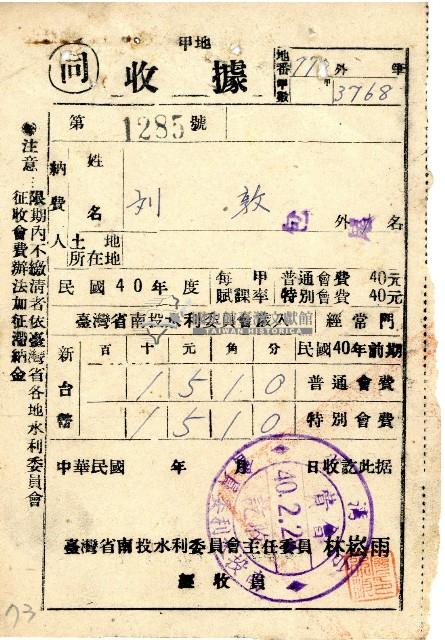 甲地
同 收據
地番 77 外 筆
甲數 3768
第 1285 號
納費人
姓名 刘 敦 外 名
土地所在地
民國40年度 每甲賦課率 普通會費 40元 特別會費 40元
臺灣省南投水利委員會歲入 經常門
新台幣 百 十 元 角 分 民國40年前期
1 5 1 0 普通會費
1 5 1 0 特別會費
中華民國 年 月 日收訖此据
40.2.2
臺灣省南投水利委員會主任委員 林崧雨
經收員
※注意：限期內不繳清者依臺灣省各地水利委員會
征收會費辦法加征滯納金
73